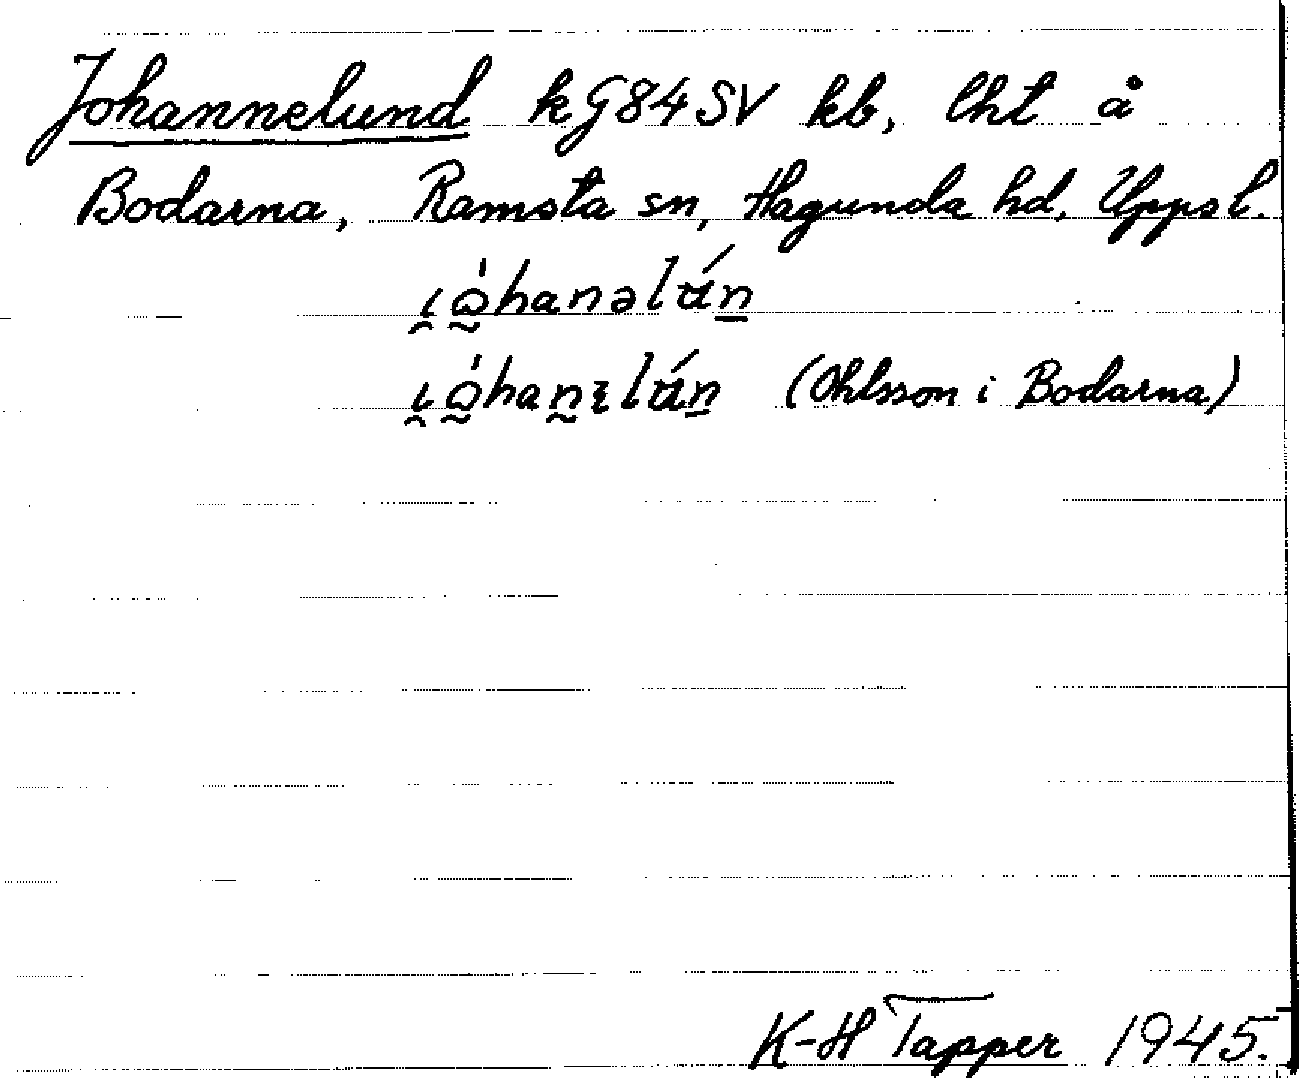 Johannelund kG84SV kb, lht å
Bodarna, Ramsta sn, Hagunda hd, Uppsl.
(Ohlsson i Bodarna)
K-H Tapper 1945.